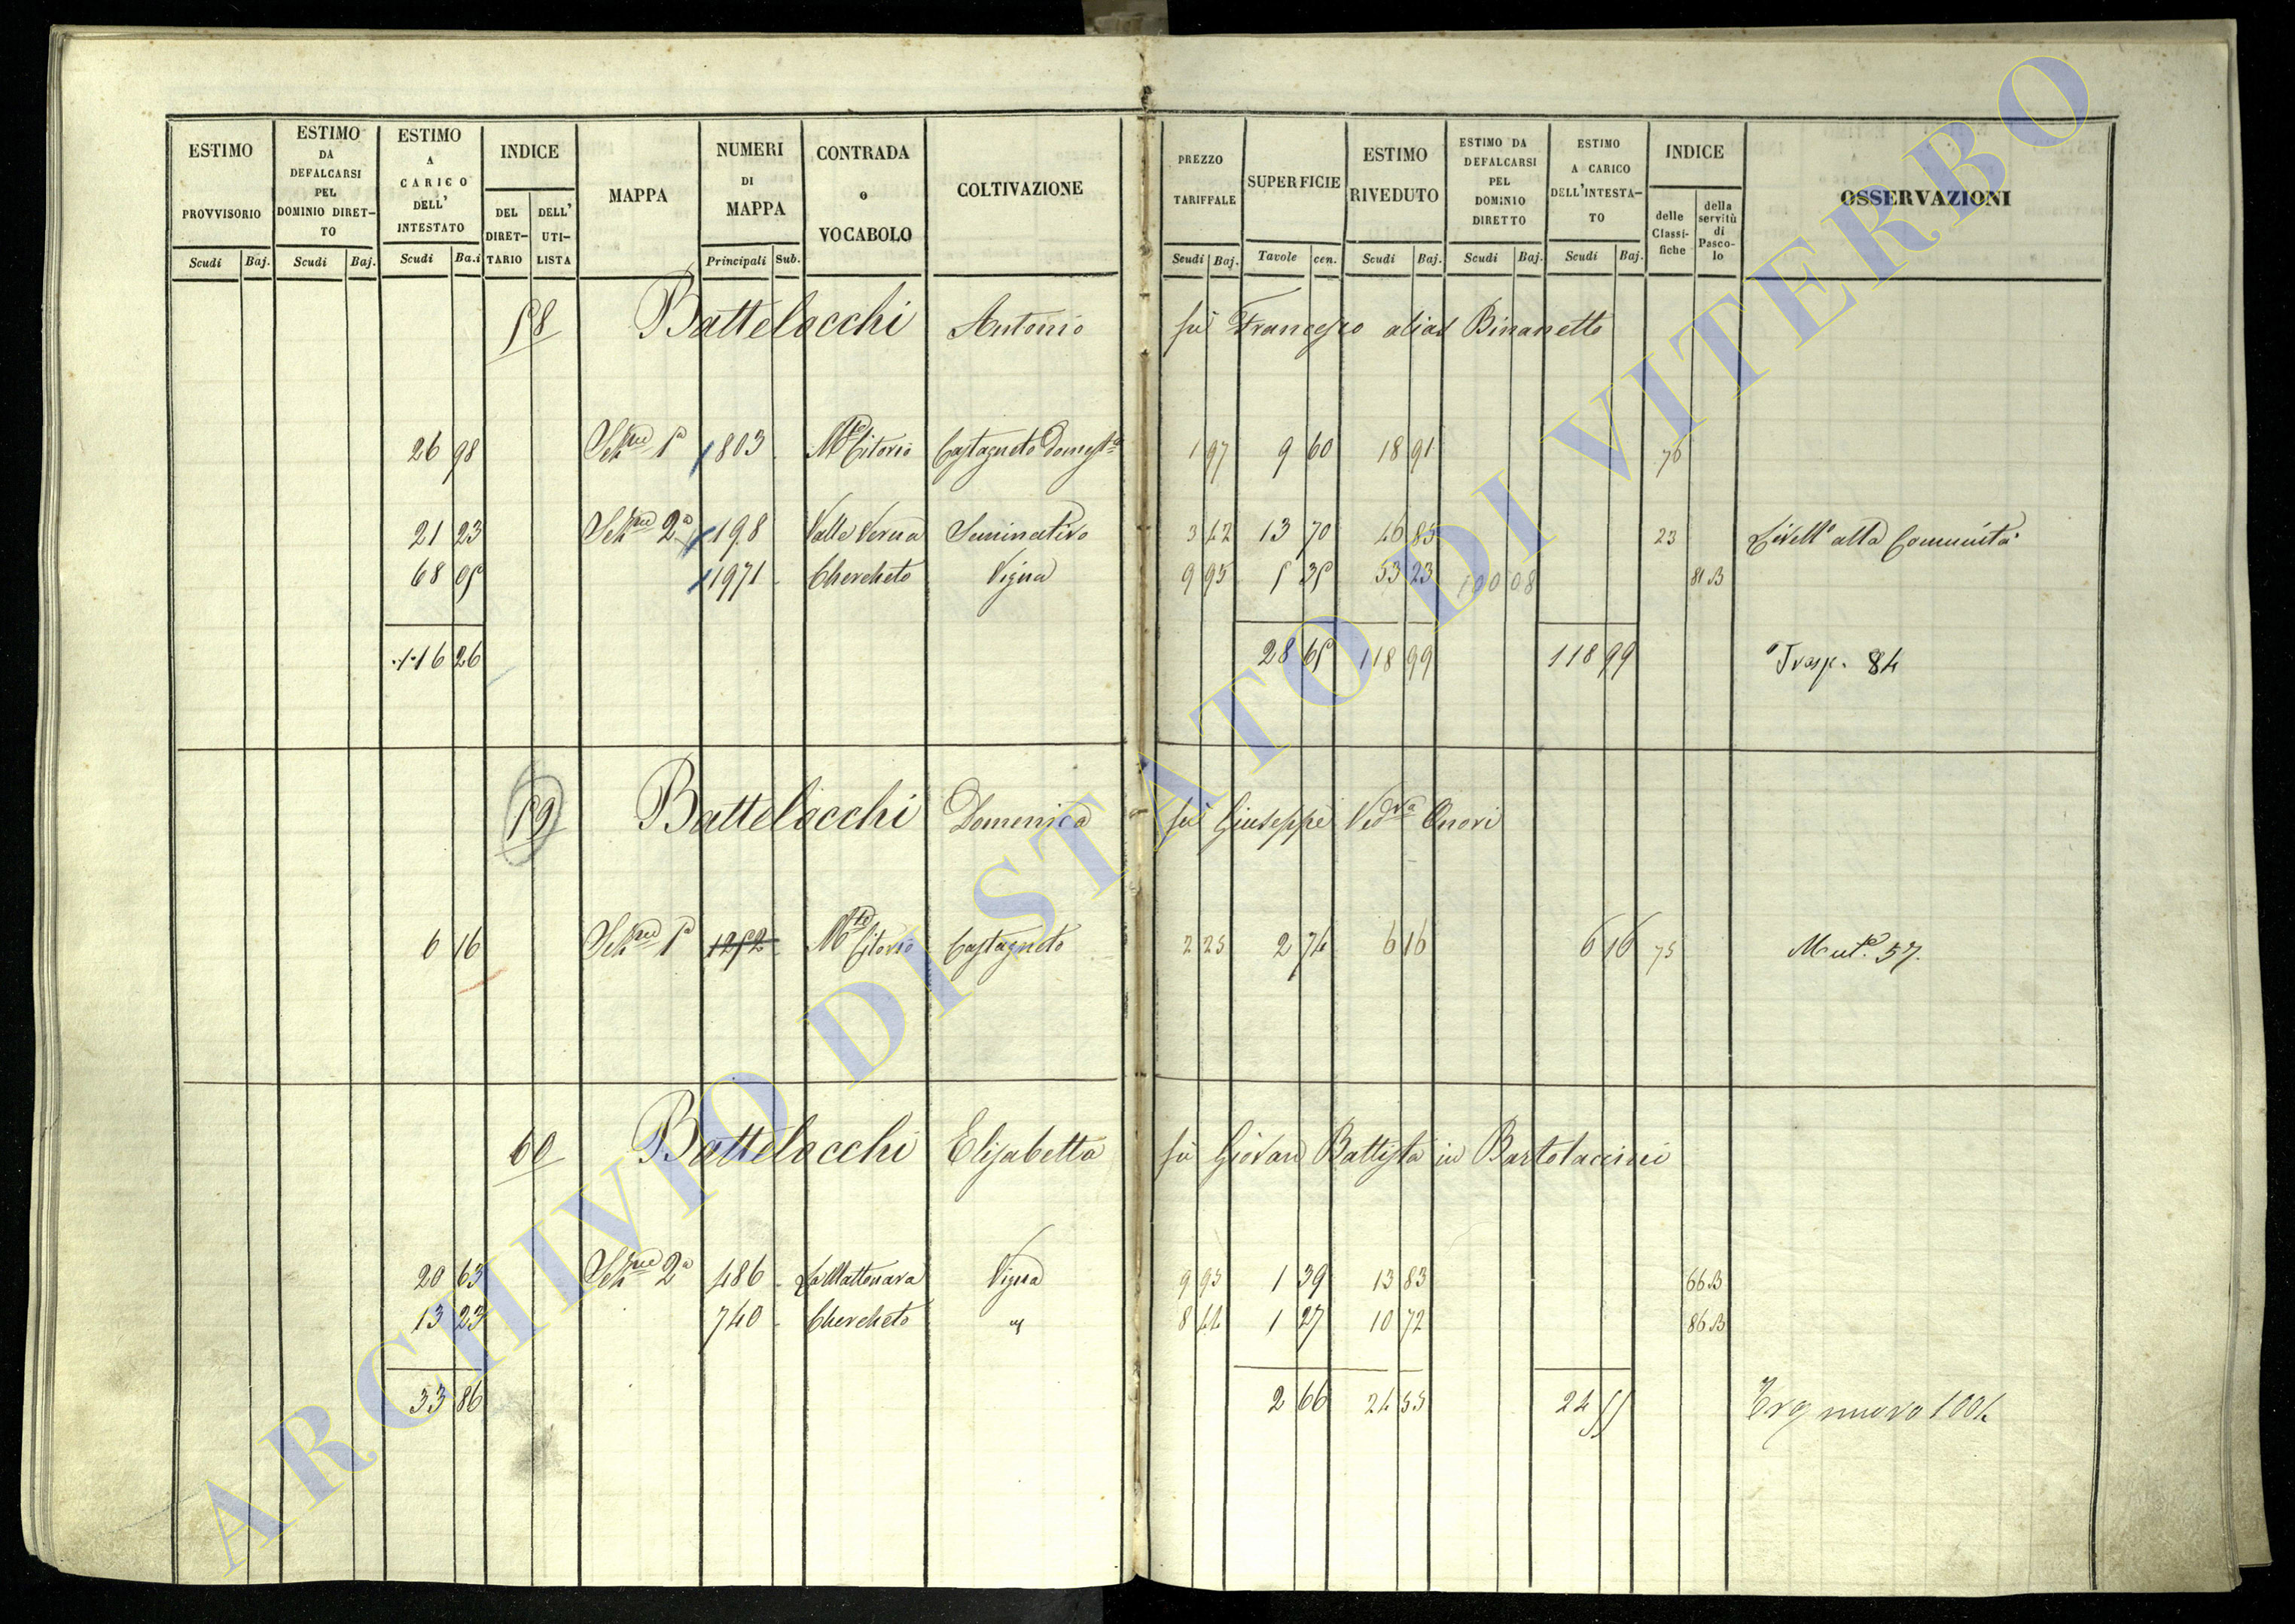 ESTIMO PROVVISORIO Scudi Baj.
ESTIMO DA DEFALCARSI PEL DOMINIO DIRET-TO Scudi Baj.
ESTIMO A CARICO DELL' INTESTATO Scudi Ba.i
INDICE DEL DIRET-TARIO DELL' UTI-LISTA
MAPPA
NUMERI DI MAPPA Principali Sub.
CONTRADA o VOCABOLO
COLTIVAZIONE
PREZZO TARIFFALE Scudi Baj.
SUPERFICIE Tavole cen.
ESTIMO RIVEDUTO Scudi Baj.
ESTIMO DA DEFALCARSI PEL DOMINIO DIRETTO Scudi Baj.
ESTIMO A CARICO DELL'INTESTA-TO Scudi Baj.
INDICE delle Classi-fiche della servitù di Pasco-lo
OSSERVAZIONI
58 Battelocchi Antonio fù Francesco alias Binanetto
26 98 Sez.ne 1a 1803 Mte Citorio Castagneto Domest.o 1 97 9 60 18 91 76
21 23 Sez.ne 2a 198 Valle Verna Seminativo 3 42 13 70 46 85 23 Livell.o alla Comunità
68 05 1971 Chercheto Vigna 9 95 5 35 53 23 100 08 81 B
116 26 28 65 118 99 118 99 Trasp. 84
59 Battelocchi Domenica fù Giuseppe Ved.va Onori
6 16 Sez.ne 1a 1252 Mte Citorio Castagneto 2 25 2 74 6 16 6 16 75 Mut.e 57.
60 Battelocchi Elisabetta fù Giovan Battista in Bartolaccini
20 63 Sez.ne 2a 486 La Mattonara Vigna 9 95 1 39 13 83 66 B
13 23 740 Chercheto " 8 44 1 27 10 72 86 B
33 86 2 66 24 55 24 55 Trg nuovo 1004
ARCHIVIO DI STATO DI VITERBO